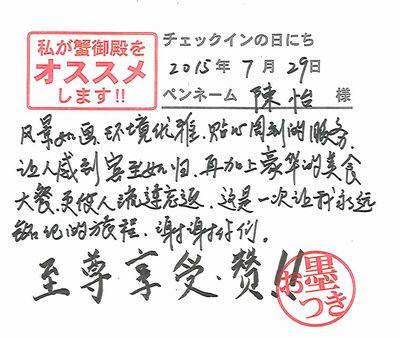 私が蟹御殿を
オススメ
します!!
チェックインの日にち
2015年7月29日
ペンネーム 陳怡 様
风景如画、环境优雅、贴心周到的服务、
让人感到宾至如归、再加上豪华的美食
大餐、更使人流连忘返、这是一次让我永远
铭记的旅程、谢谢你们。
至尊享受、赞!!
お墨
つき